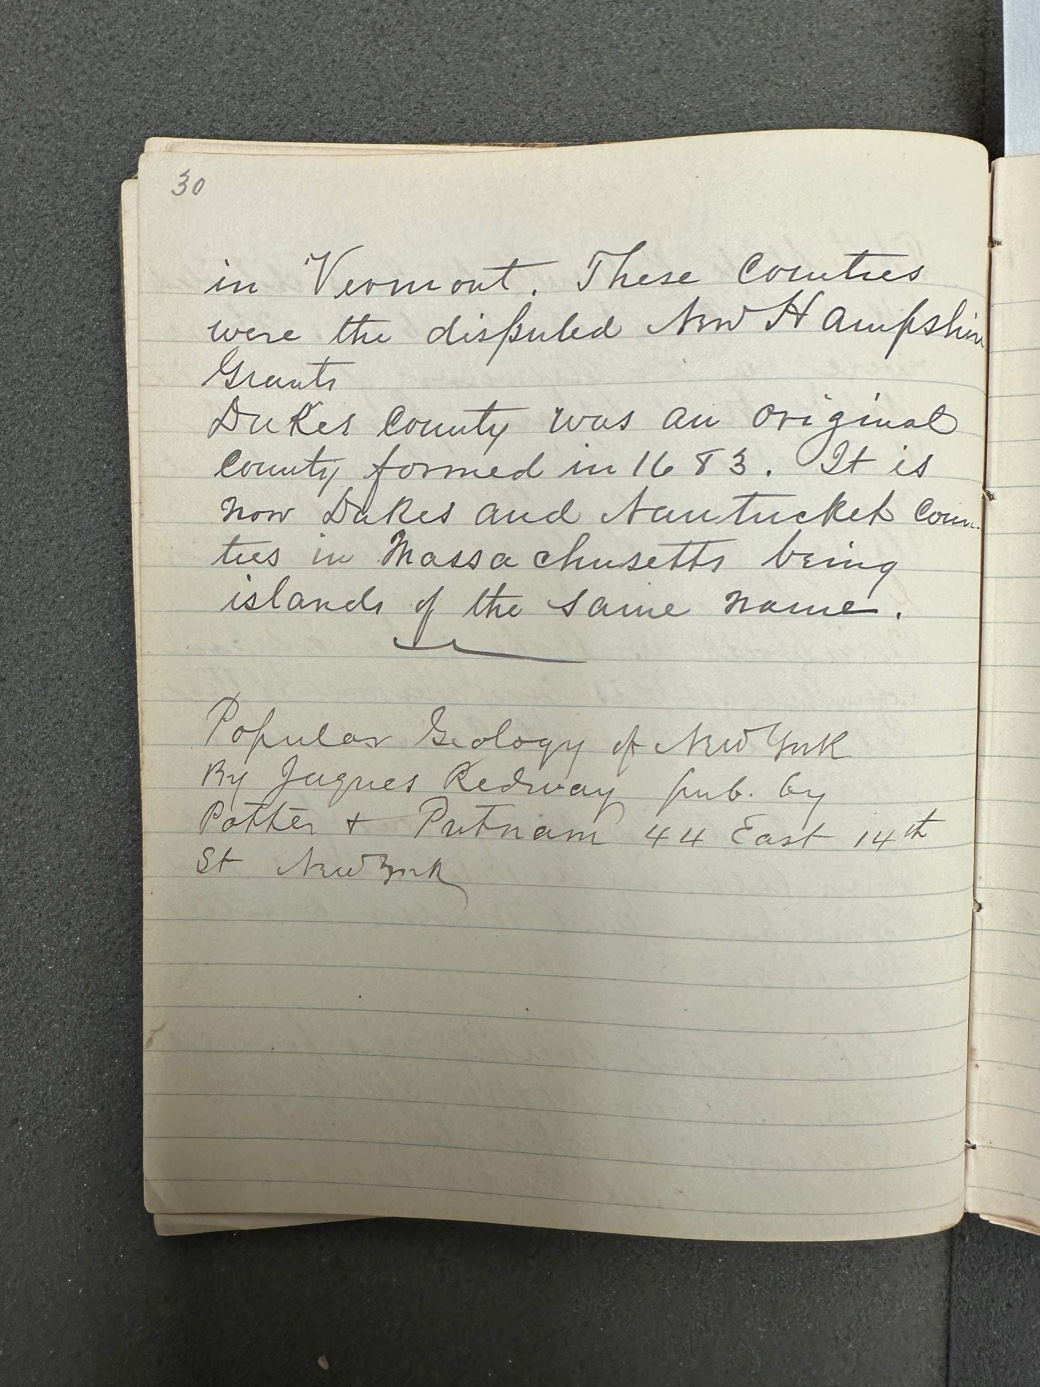 30
in Vermont. These Counties
were the disputed New Hampshire
Grants
Dukes County was an original
County formed in 1683. It is
now Dukes and Nantucket Coun-
ties in Massachusetts being
islands of the same name.
Popular Geology of New York
By Jaques Redway pub. by
Potter + Putnam 44 East 14th
St New York